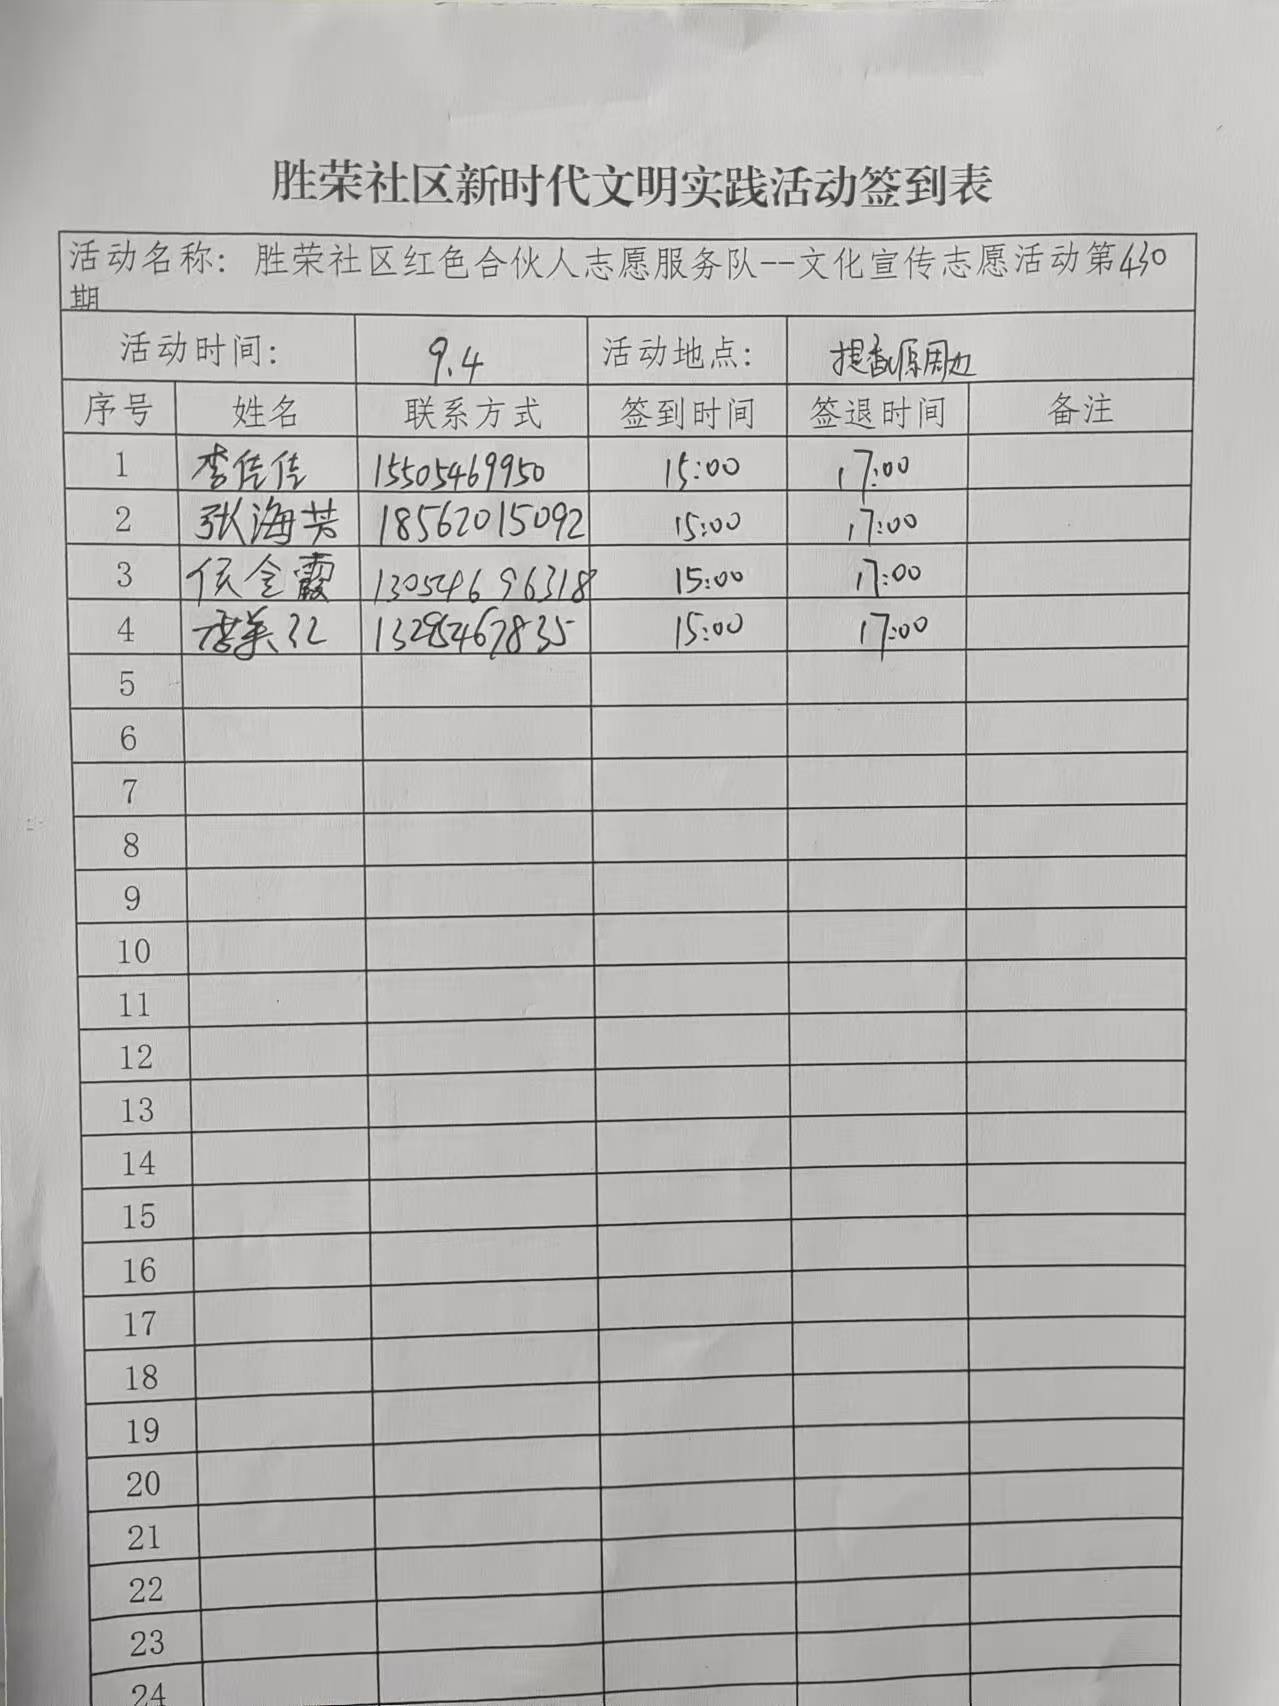 胜荣社区新时代文明实践活动签到表
活动名称：胜荣社区红色合伙人志愿服务队--文化宣传志愿活动第430
期
活动时间： 9.4 活动地点： 提香源周边
序号 姓名 联系方式 签到时间 签退时间 备注
1 李佳佳 15505469950 15:00 17:00
2 张海芳 18562015092 15:00 17:00
3 侯令霞 13054696318 15:00 17:00
4 李美红 13295467835 15:00 17:00
5
6
7
8
9
10
11
12
13
14
15
16
17
18
19
20
21
22
23
24